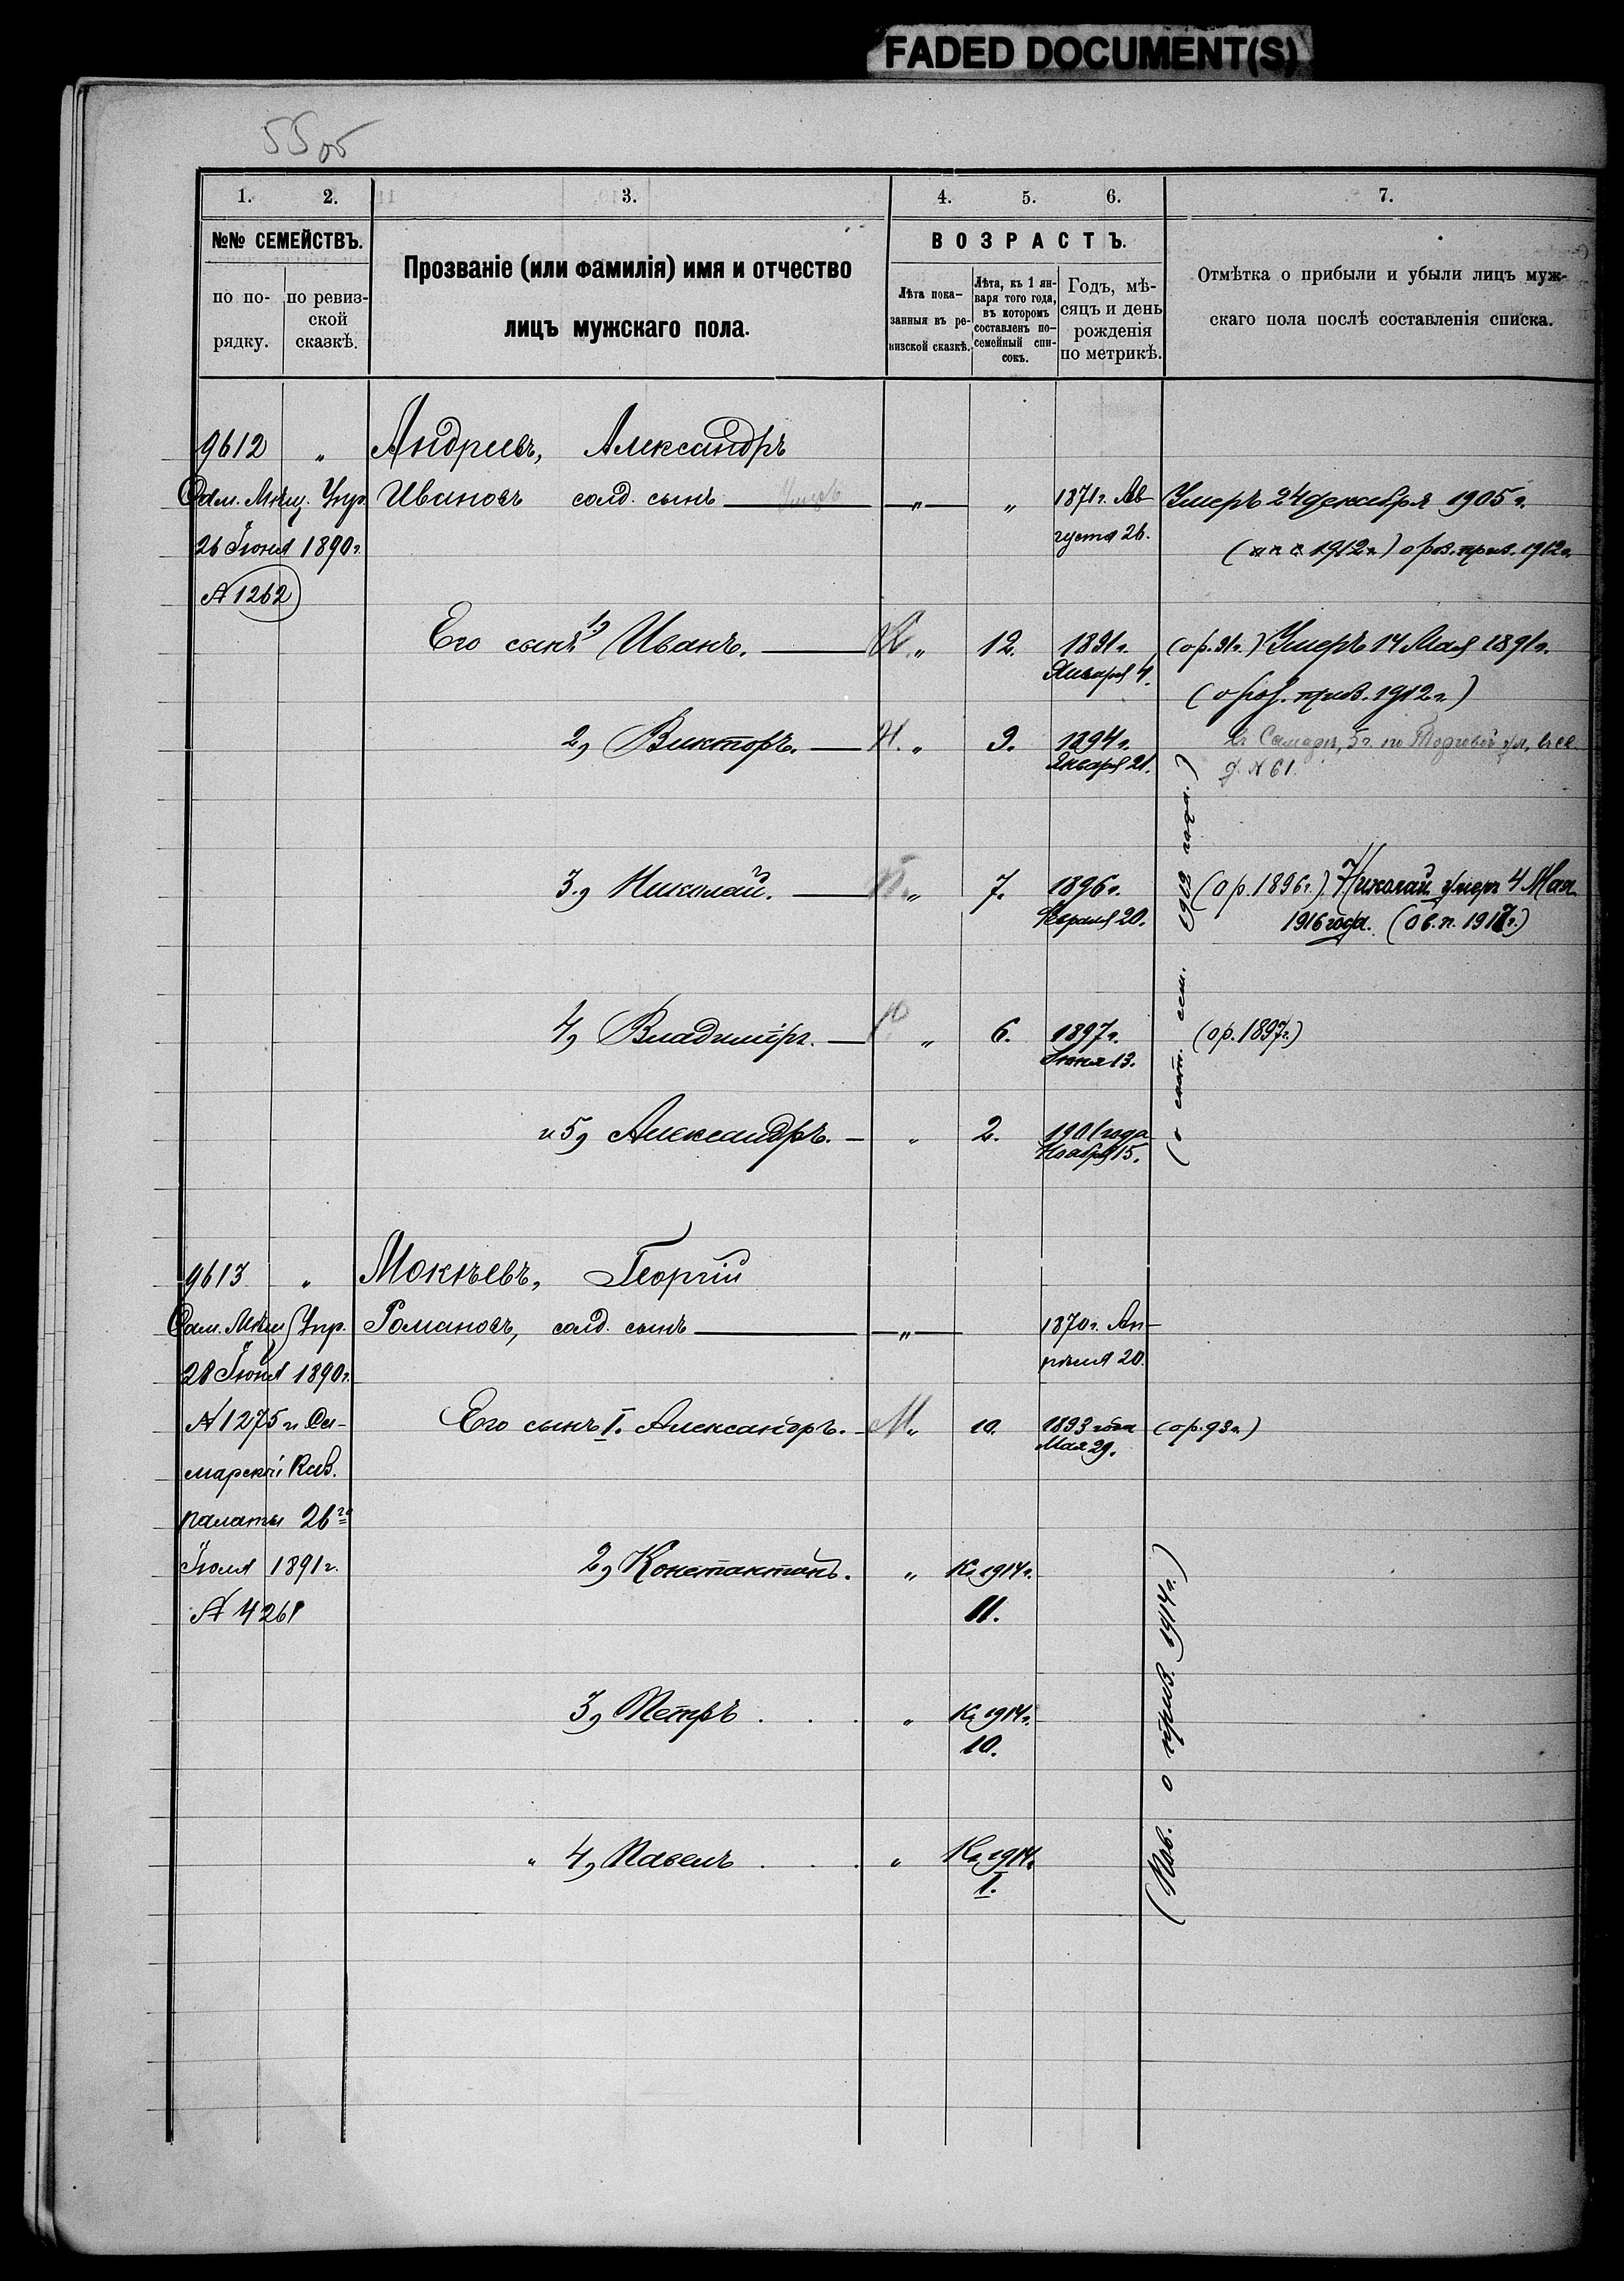 FADED DOCUMENT(S)
55 об
1. 2. 3. 4. 5. 6. 7.
№№ СЕМЕЙСТВЪ.
по по-
рядку.
по ревиз-
ской
сказкѣ.
Прозваніе (или фамилія) имя и отчество
лицъ мужскаго пола.
ВОЗРАСТЪ.
Лѣта пока-
занныя въ ре-
визской сказкѣ.
Лѣта, къ 1 ян-
варя того года,
въ которомъ
составленъ по-
семейный спи-
сокъ.
Годъ, мѣ-
сяцъ и день
рожденія
по метрикѣ.
Отмѣтка о прибыли и убыли лицъ муж-
скаго пола послѣ составленія списка.
9612 " Андреевъ, Александръ
Сам. Мѣщ. Упр. Ивановъ солд. сынъ " " 1871 г. Ав- Умеръ 24 декабря 1905 г.
26 Іюня 1890 г. густа 26. 1912 г.
№ 1262
Его сынъ 1, Иванъ. " 12. 1891 г. (ор. 91 г.) Умеръ 14 Мая 1891 г.
Января 4. прив. 1912 г.)
2, Викторъ. " 9. 1894 г. Самара, по Торговой ул,
Января 21. д. № 61.
3, Николай. " 7. 1896 г. (ор. 1896 г.) Николай умеръ 4 Мая
Февраля 20. 1916 года. (О в. п. 1917 г.)
4, Владиміръ. " 6. 1897 г. (ор. 1897 г.)
Іюня 13.
и 5, Александръ. " 2. 1901 года
Ноября 15.
1903 года.)
9613 " Мокѣевъ, Георгій
Сам. Мѣщ. Упр. Романовъ, солд. сынъ " 1870 г. Ап-
28 Іюня 1890 г. рѣля 20.
№ 1275 и Са- Его сынъ I. Александръ. М " 10. 1893 года (ор. 93 г.)
Мая 29.
марской Каз.
палаты 26го
Іюля 1891 г. 2, Константинъ. " Къ 1914 г.
№ 4261 11.
3, Петръ . . . " Къ 1914 г.
10.
" 4, Павелъ . . . " Къ 1914 г.
1.
о прив. 1914 г.)